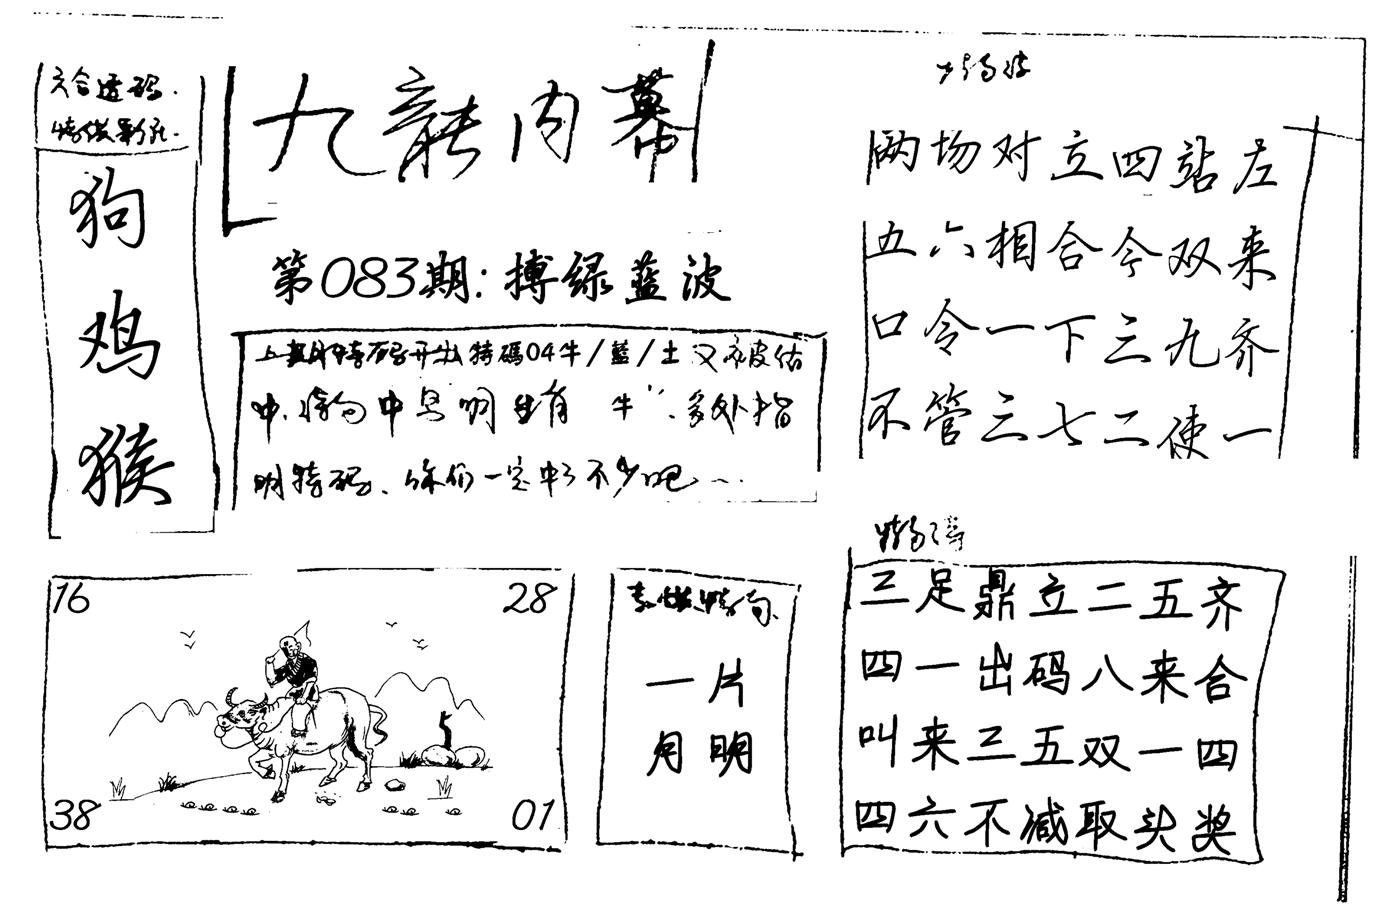 六合透码.
特供彩孔.
狗
鸡
猴
九龍内幕
第083期:搏绿蓝波
上期特码开出特碼04牛/藍/土又被估
中.特句中 明 有 牛".多处指
明特码.你们一定中了不少吧…
两场对立四站左
五六相合今双来
口令一下三九齐
不管三七二使一
16
28
38
01
特句
一片
月明
三足鼎立二五齐
四一出码八来合
叫来三五双一四
四六不减取头奖